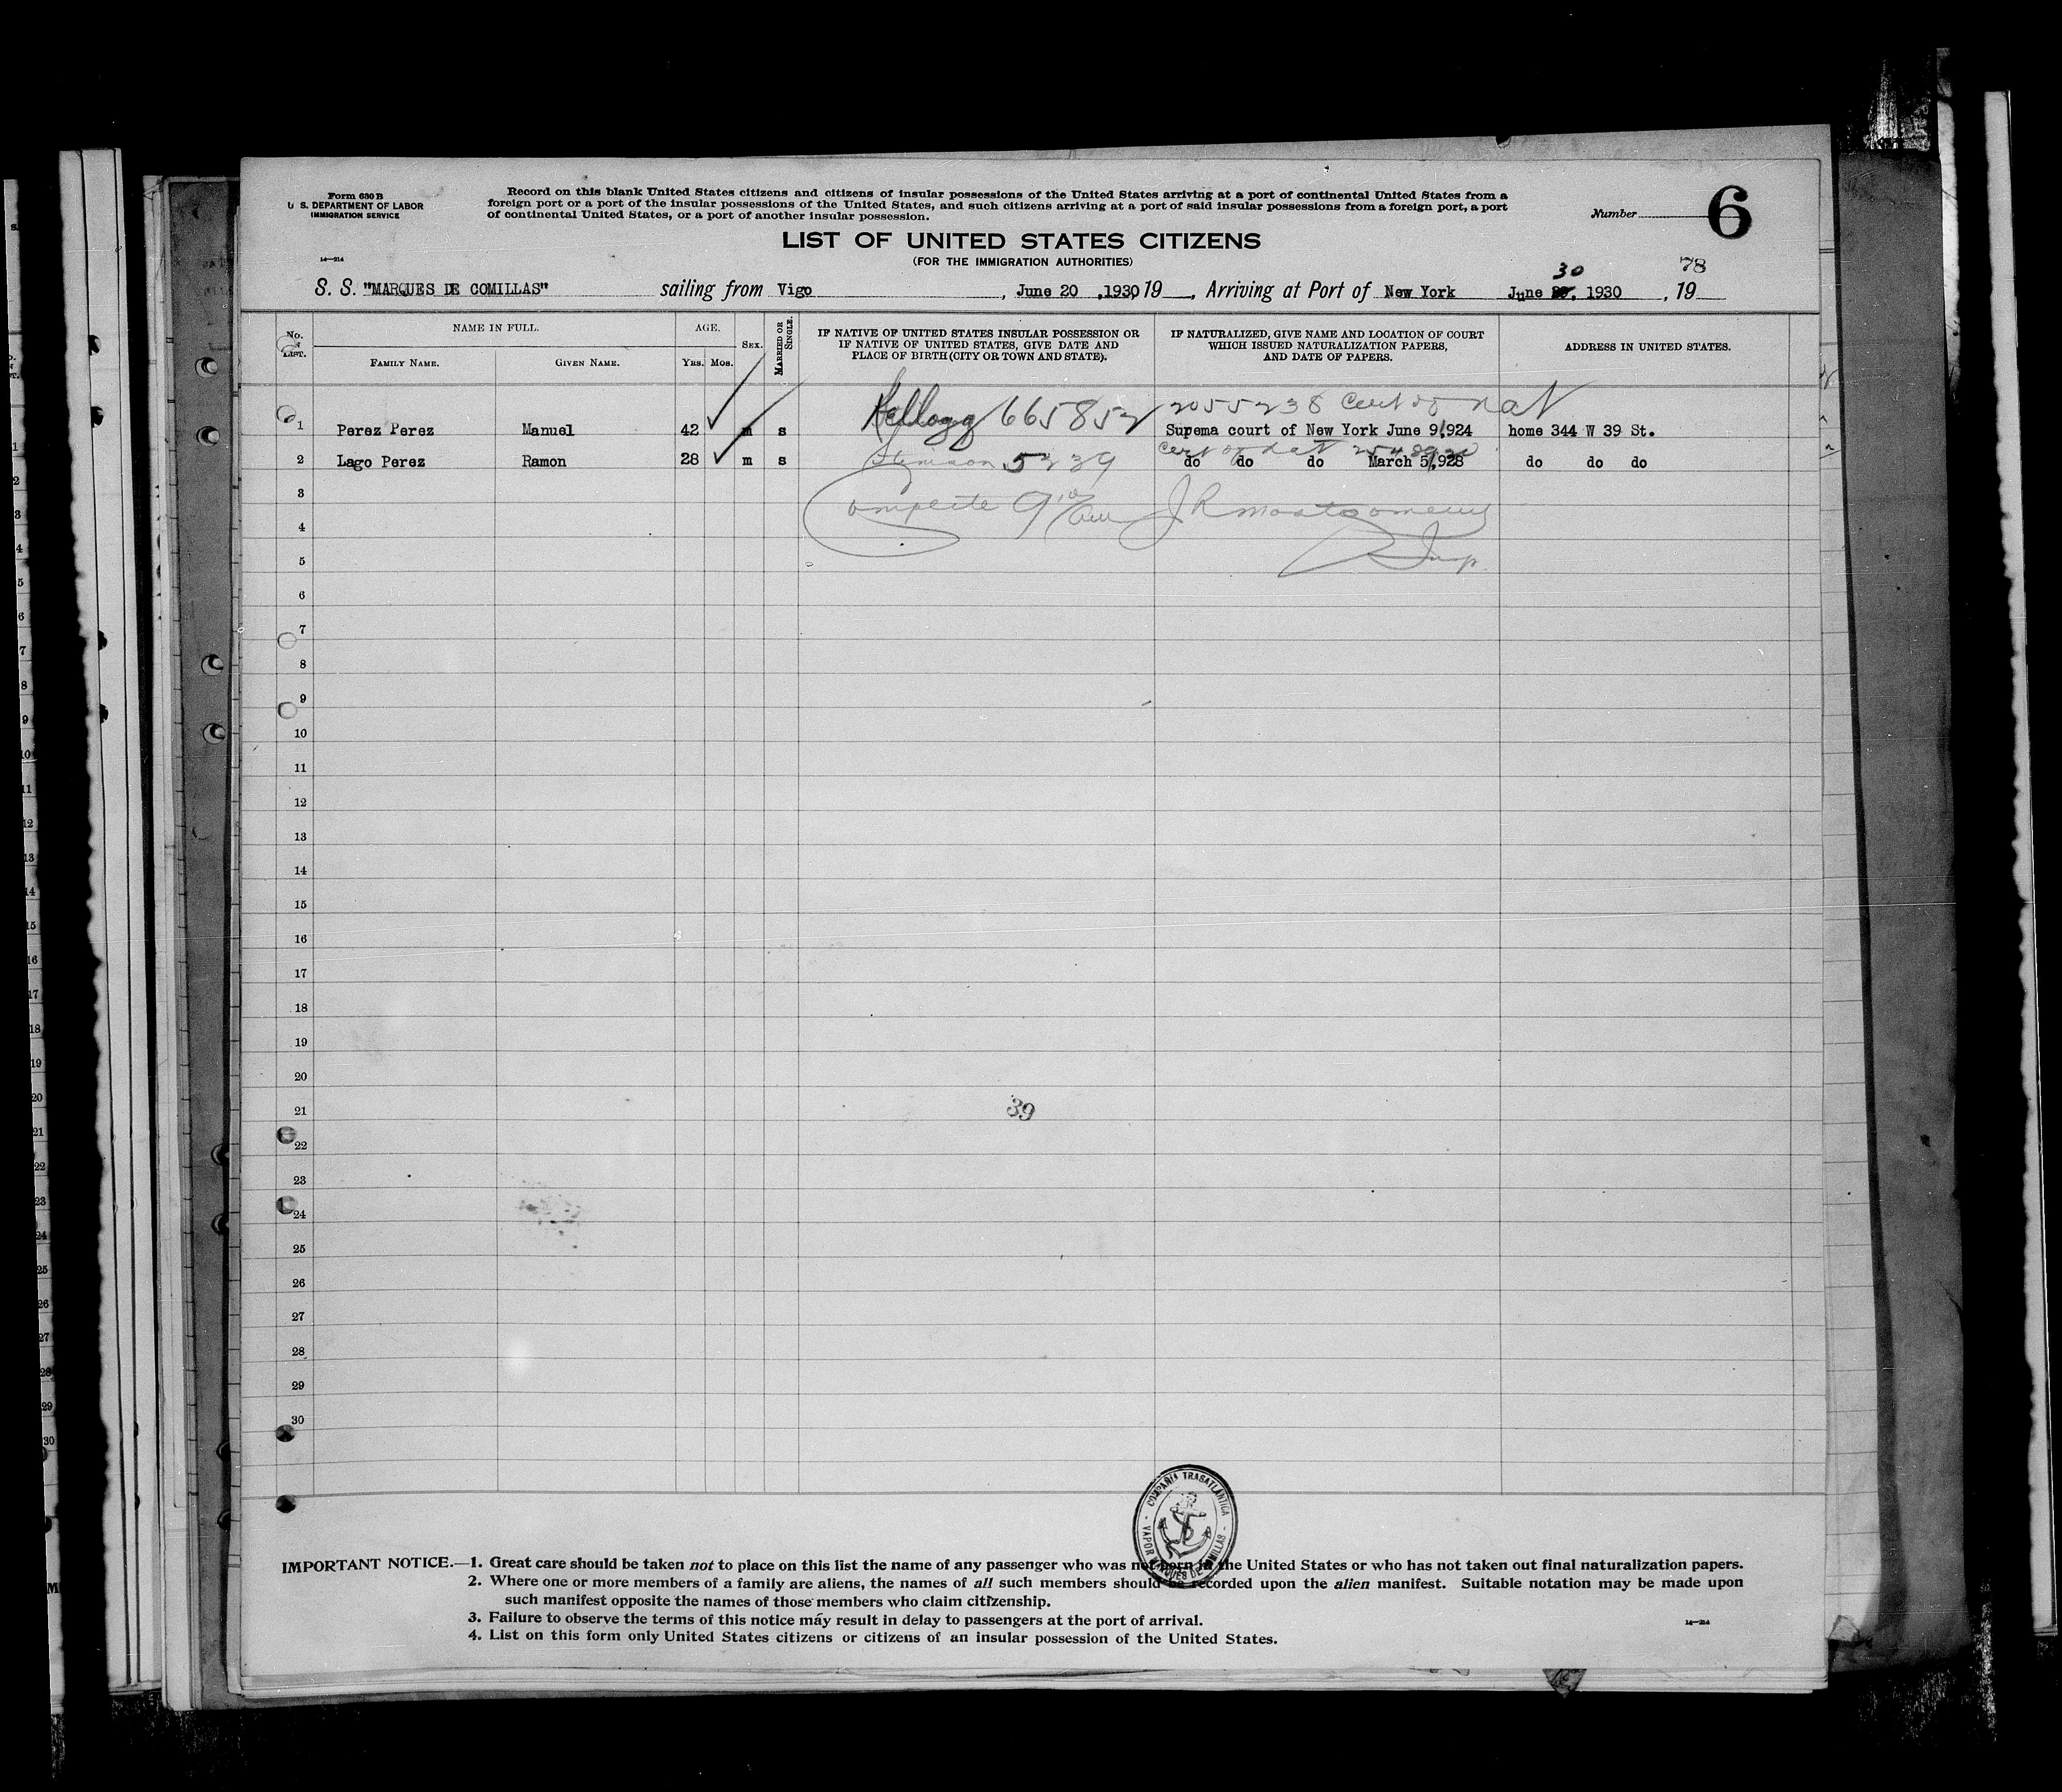 Form 630 B
U. S. DEPARTMENT OF LABOR
IMMIGRATION SERVICE
14—214
Record on this blank United States citizens and citizens of insular possessions of the United States arriving at a port of continental United States from a
foreign port or a port of the insular possessions of the United States, and such citizens arriving at a port of said insular possessions from a foreign port, a port
of continental United States, or a port of another insular possession.
Number 6
LIST OF UNITED STATES CITIZENS
(FOR THE IMMIGRATION AUTHORITIES)
30 78
S. S. "MARQUES DE COMILLAS" sailing from Vigo, June 20 ,1930, 19 , Arriving at Port of New York June , 1930 , 19
No. IN LIST. NAME IN FULL. AGE. SEX. MARRIED OR SINGLE. IF NATIVE OF UNITED STATES INSULAR POSSESSION OR IF NATIVE OF UNITED STATES, GIVE DATE AND PLACE OF BIRTH (CITY OR TOWN AND STATE). IF NATURALIZED, GIVE NAME AND LOCATION OF COURT WHICH ISSUED NATURALIZATION PAPERS, AND DATE OF PAPERS. ADDRESS IN UNITED STATES.
FAMILY NAME. GIVEN NAME. YRS. MOS.
Kellogg 665852 2055238 Cert of nat
1 Perez Perez Manuel 42 m s Supema court of New York June 9,924 home 344 W 39 St.
Cert of Nat
2 Lago Perez Ramon 28 m s Stimson 5239 do do do March 5,928 do do do
3
Complete JR Montgomery
4
Insp.
5
6
7
8
9
10
11
12
13
14
15
16
17
18
19
20
21 39
22
23
24
25
26
27
28
29
30
COMPAÑIA TRASATLANTICA
VAPOR MARQUES DE COMILLAS
IMPORTANT NOTICE.—1. Great care should be taken not to place on this list the name of any passenger who was not born in the United States or who has not taken out final naturalization papers.
2. Where one or more members of a family are aliens, the names of all such members should be recorded upon the alien manifest. Suitable notation may be made upon
such manifest opposite the names of those members who claim citizenship.
3. Failure to observe the terms of this notice may result in delay to passengers at the port of arrival.
4. List on this form only United States citizens or citizens of an insular possession of the United States.
14—214